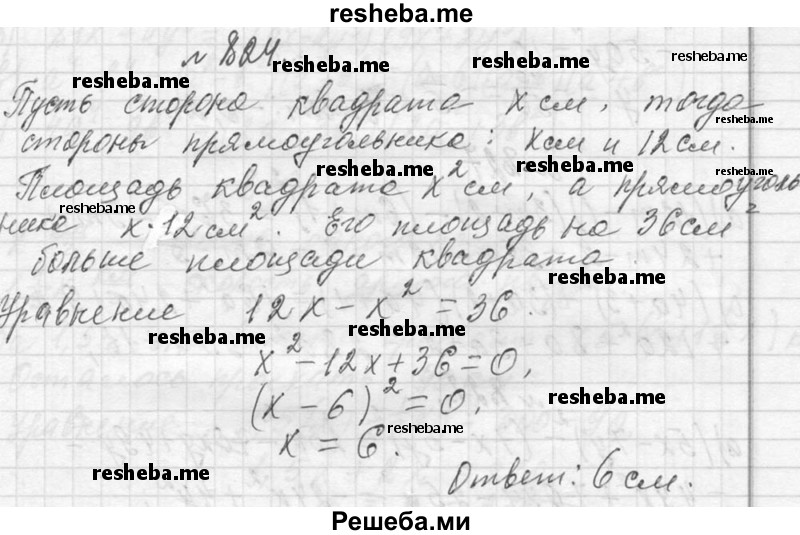 resheba.me
№ 824.
resheba.me resheba.me resheba.me
Пусть сторона квадрата x см, тогда
resheba.me
стороны прямоугольника: x см и 12 см.
resheba.me resheba.me
Площадь квадрата x² см, а прямоуголь
resheba.me
ника x·12 см². Его площадь на 36 см²
больше площади квадрата.
resheba.me
Уравнение 12x - x² = 36.
resheba.me resheba.me
x² - 12x + 36 = 0,
(x - 6)² = 0,
resheba.me
x = 6.
resheba.me
resheba.me
Ответ: 6 см.
Решеба.ми